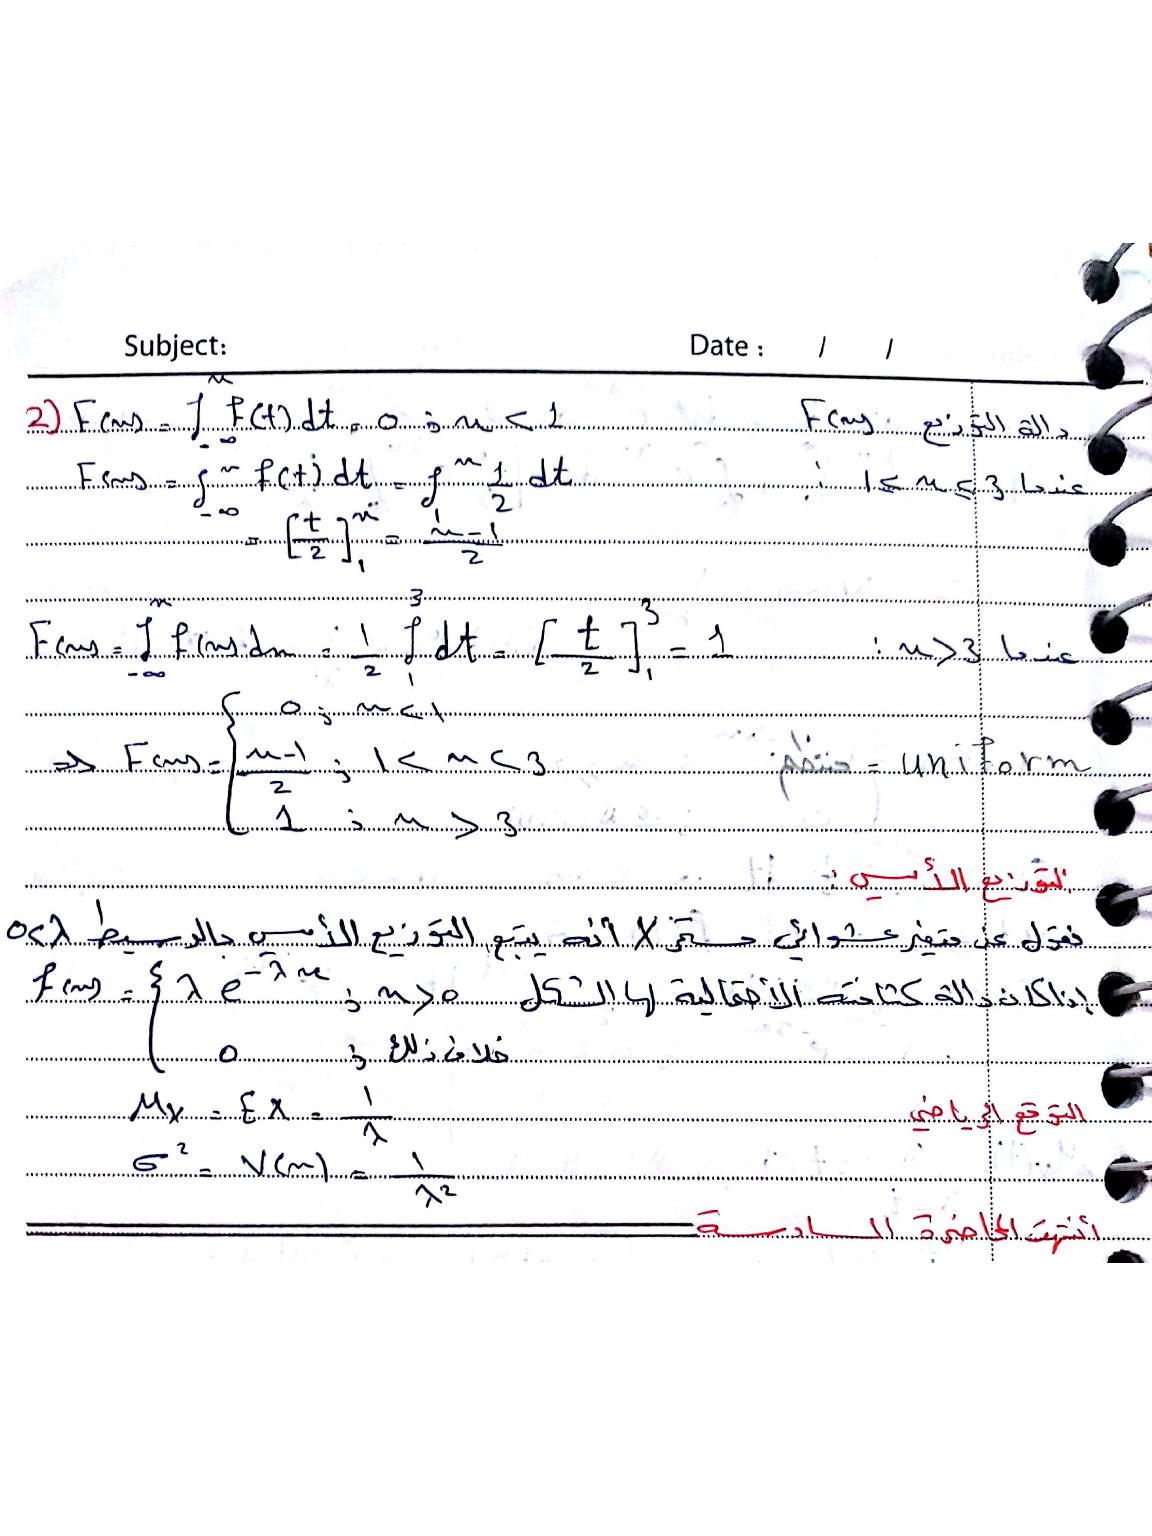 Subject: Date : / /
2) F(x) = ∫_{-∞}^{x} f(t) dt = 0 ; x < 1 دالة التوزيع F(x)
F(x) = ∫_{-∞}^{x} f(t) dt = ∫_{1}^{x} 1/2 dt عندما 1 ≤ x ≤ 3 :
= [t/2]_{1}^{x} = (x-1)/2
F(x) = ∫_{-∞}^{x} f(x) dx = 1/2 ∫_{1}^{3} dt = [t/2]_{1}^{3} = 1 عندما x > 3 :
0 ; x < 1
⇒ F(x) = { (x-1)/2 ; 1 < x < 3 منتظم = uniform
1 ; x > 3
التوزيع الأسي :
نقول عن متغير عشوائي مستمر X أنه يتبع التوزيع الأسي بالوسيط 0<λ
إذا كان دالة كثافته الاحتمالية لها الشكل f(x) = { λ e^{-λx} ; x > 0
0 ; خلاف ذلك
التوقع الرياضي μ_X = EX = 1/λ
σ² = V(x) = 1/λ²
أنتهت المحاضرة السادسة